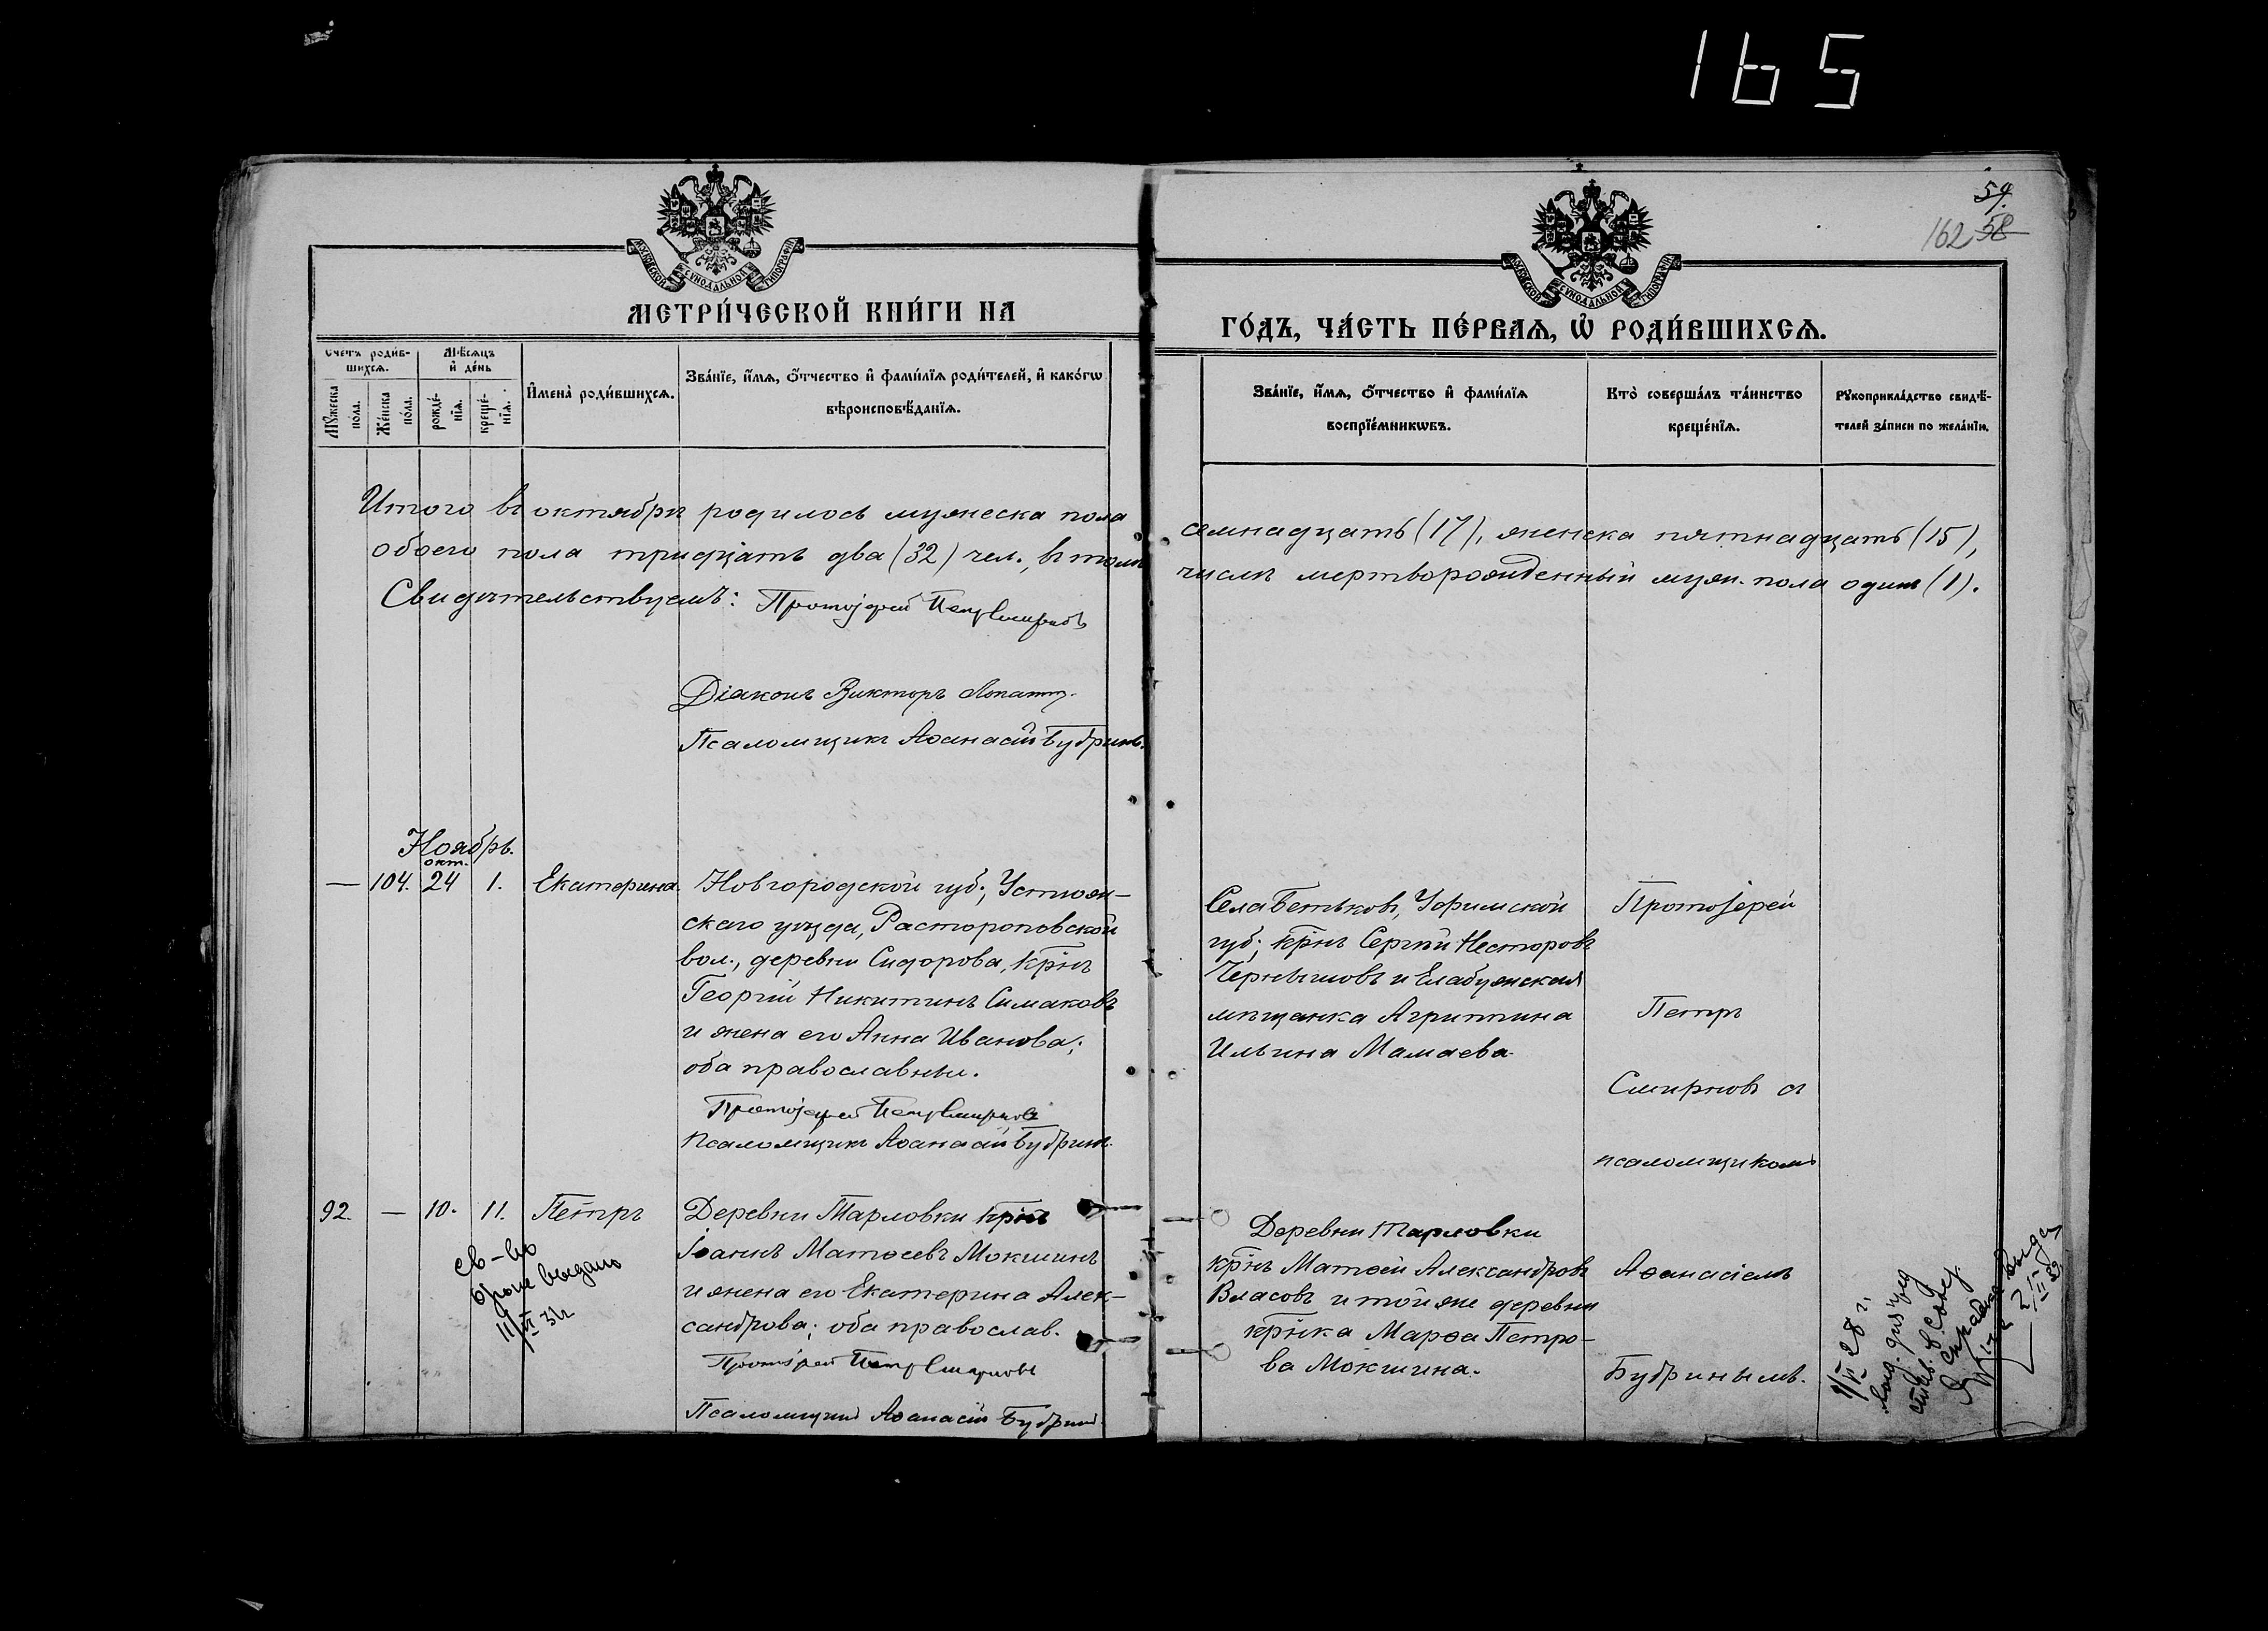 165
54.
162 58
МОСКОВСКОЙ СѴНОДАЛЬНОЙ ТИПОГРАФІИ
МОСКОВСКОЙ СѴНОДАЛЬНОЙ ТИПОГРАФІИ
МЕТРИ́ЧЕСКОЙ КНИ́ГИ НА
ГО́ДЪ, ЧА́СТЬ ПЕ́РВАѦ, Ѡ҆ РОДИ́ВШИХСѦ.
Счетъ роди́в-
шихсѧ.
Мꙋжеска
пола.
Же́нска
по́ла.
Мѣ́сѧцъ
и҆ де́нь
рожде́-
нїѧ.
креще́-
нїѧ.
И҆мена̀ роди́вшихсѧ.
Зва́нїе, и҆́мѧ, ѻ҆́тчество и҆ фами́лїѧ роди́телей, и҆ како́гѡ
вѣроисповѣ́данїѧ.
Зва́нїе, и҆́мѧ, ѻ҆́тчество и҆ фами́лїѧ
воспрїе́мникѡвъ.
Кто̀ соверша́лъ та́инство
креще́нїѧ.
Рꙋкоприкла́дство свидѣ́-
телей за́писи по жела́нїю.
Итого въ октябрѣ родилось мужеска пола семнадцать (17), женска пятнадцать (15),
обоего пола тридцать два (32) чел., въ томъ числѣ мертворожденный муж. пола одинъ (1).
Свидѣтельствуемъ: Протоіерей Петр Смирновъ
Діаконъ Викторъ
Псаломщикъ Аѳанасій Будринъ.
Ноябрь.
окт.
— 104. 24 1. Екатерина.
Новгородской губ., Устюж-
скаго уѣзда, Растороповской
вол., деревни Сидорова, кр̃нъ
Георгій Никитинъ Симаковъ
и жена его Анна Иванова;
оба православные.
Протоіерей Петр Смирновъ
Псаломщикъ Аѳанасій Будринъ.
Села Бетьковъ, Уфимской
губ., кр̃нъ Сергѣй Несторовъ
Чернышовъ и Елабужская
мѣщанка Агриппина
Ильина Мамаева.
Протоіерей
Петръ
Смирновъ съ
псаломщикомъ
92. — 10. 11. Петръ
Деревни Тарловки кр̃нъ
Іоаннъ Матѳеевъ Мокшинъ
и жена его Екатерина Алек-
сандрова; оба православ.
Протоіерей Петр Смирновъ
Псаломщикъ Аѳанасій Будринъ
Деревни Тарловки
кр̃нъ Матѳей Александровъ
Власовъ и той же деревни
кр̃нка Марѳа Петро-
ва Мокшина.
Аѳанасіемъ
Будринымъ.
св-во
выдано